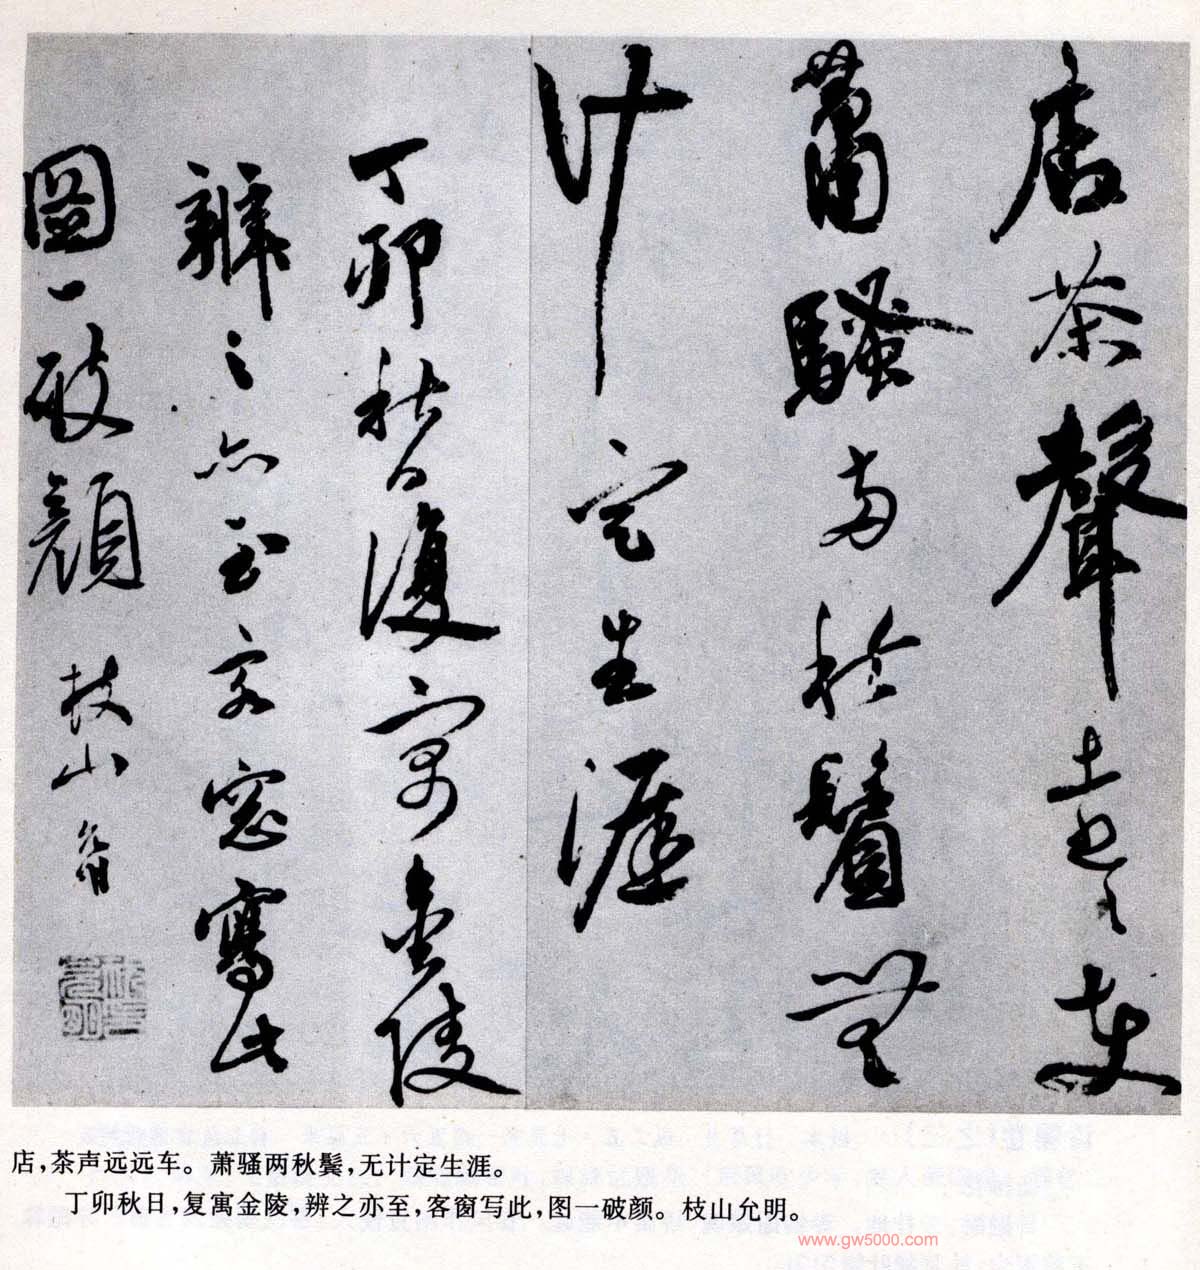 店茶聲遠々車
蕭騷兩秋鬢無
計定生涯
丁卯秋日復寓金陵
辨之亦至客窓寫此
圖一破顏 枝山允明
店,茶声远远车。萧骚两秋鬓,无计定生涯。
丁卯秋日,复寓金陵,辨之亦至,客窗写此,图一破颜。枝山允明。
www.gw5000.com